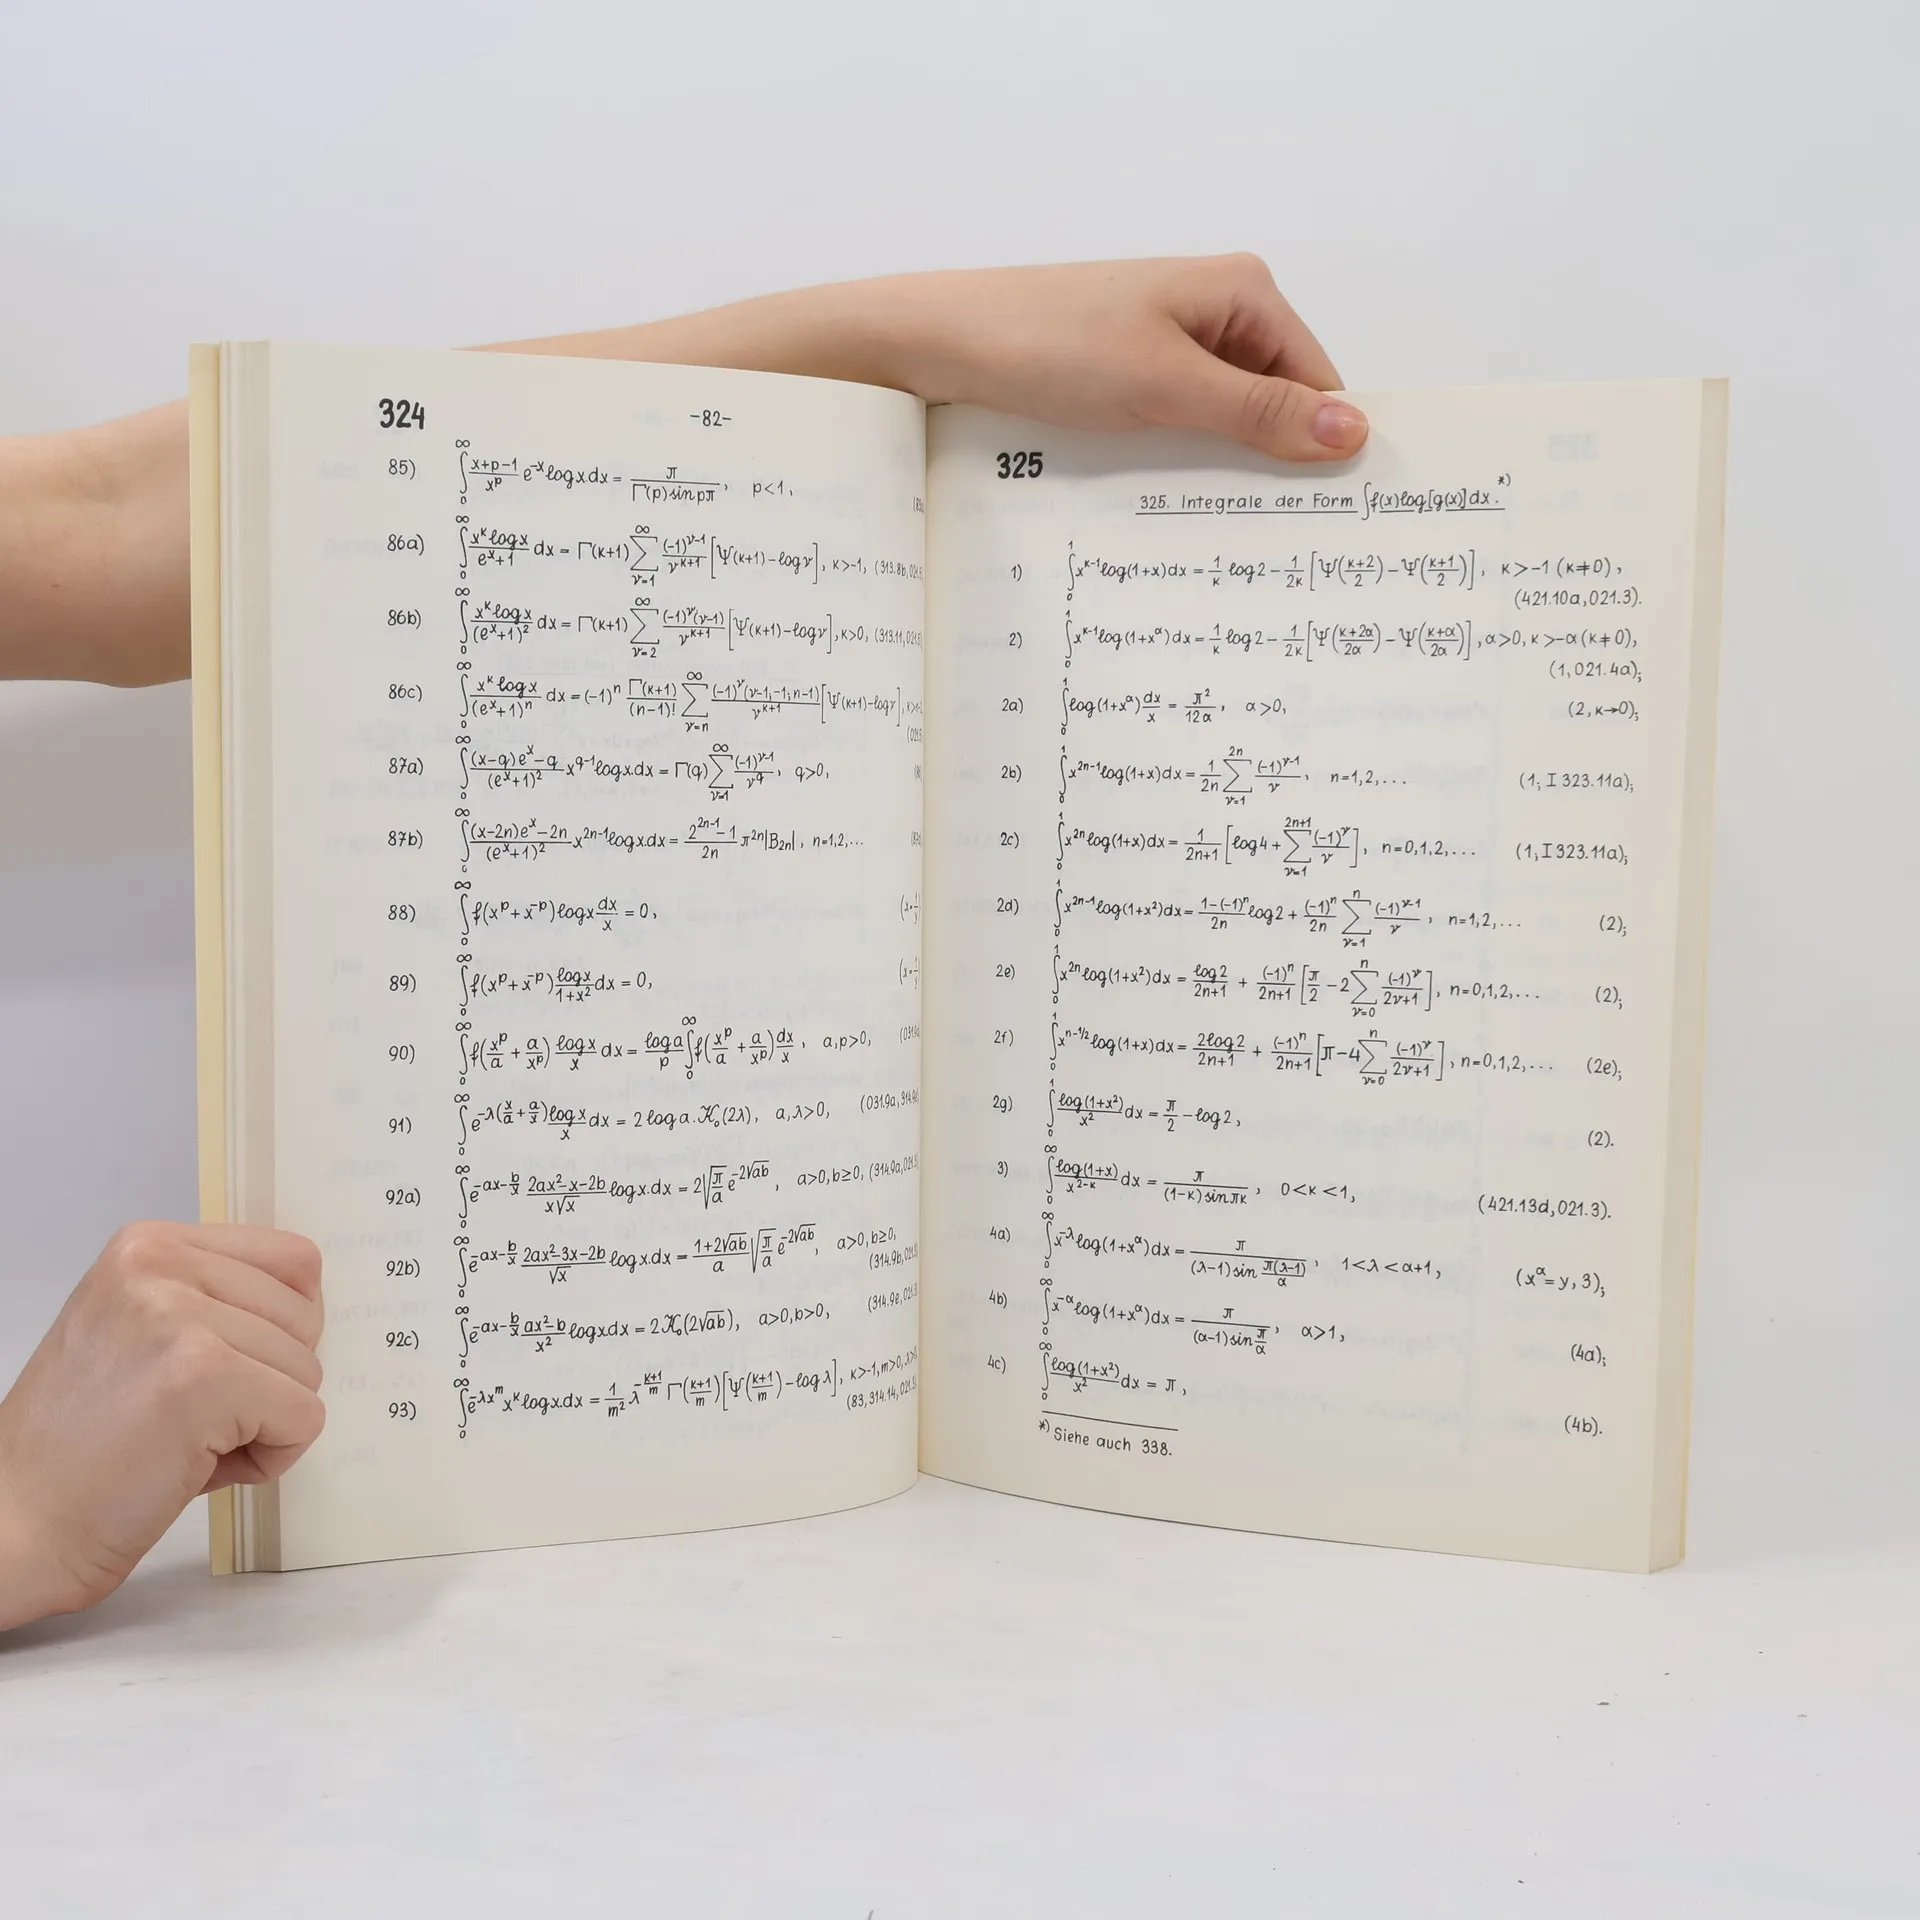 324
-82-
85) ∫₀^∞ (x+p-1)/x^p e^{-x} log x.dx = π/(Γ(p) sin pπ), p<1,
86a) ∫₀^∞ (x^κ log x)/(e^x+1) dx = Γ(κ+1) ∑_{ν=1}^∞ (-1)^{ν-1}/ν^{κ+1} [Ψ(κ+1)-log ν], κ>-1, (313.8b,
86b) ∫₀^∞ (x^κ log x)/(e^x+1)² dx = Γ(κ+1) ∑_{ν=2}^∞ (-1)^ν(ν-1)/ν^{κ+1} [Ψ(κ+1)-log ν], κ>0, (313.11,
86c) ∫₀^∞ (x^κ log x)/(e^x+1)^n dx = (-1)^n Γ(κ+1)/(n-1)! ∑_{ν=n}^∞ (-1)^ν(ν-1;-1;n-1)/ν^{κ+1} [Ψ(κ+1)-log ν],
87a) ∫₀^∞ ((x-q)e^x-q)/(e^x+1)² x^{q-1} log x.dx = Γ(q) ∑_{ν=1}^∞ (-1)^{ν-1}/ν^q, q>0,
87b) ∫₀^∞ ((x-2n)e^x-2n)/(e^x+1)² x^{2n-1} log x.dx = (2^{2n-1}-1)/2n π^{2n}|B_{2n}|, n=1,2,...
88) ∫₀^∞ f(x^p+x^{-p}) log x dx/x = 0,
89) ∫₀^∞ f(x^p+x^{-p}) log x/(1+x²) dx = 0,
90) ∫₀^∞ f(x^p/a + a/x^p) log x/x dx = log a/p ∫₀^∞ f(x^p/a + a/x^p) dx/x, a,p>0,
91) ∫₀^∞ e^{-λ(x/a+a/x)} log x/x dx = 2 log a.K₀(2λ), a,λ>0, (031.9a,
92a) ∫₀^∞ e^{-ax-b/x} (2ax²-x-2b)/(x√x) log x.dx = 2√(π/a) e^{-2√ab}, a>0,b≥0, (314.9a,
92b) ∫₀^∞ e^{-ax-b/x} (2ax²-3x-2b)/√x log x.dx = (1+2√ab)/a √(π/a) e^{-2√ab}, a>0,b≥0,
(314.9b,
92c) ∫₀^∞ e^{-ax-b/x} (ax²-b)/x² log x.dx = 2K₀(2√ab), a>0,b>0, (314.9e,
93) ∫₀^∞ e^{-λx^m} x^κ log x.dx = 1/m² λ^{-(κ+1)/m} Γ((κ+1)/m) [Ψ((κ+1)/m)-log λ], κ>-1,m>0,
(83,314.14,
325
325. Integrale der Form ∫f(x)log[g(x)]dx.*)
1) ∫₀¹ x^{κ-1} log(1+x)dx = 1/κ log 2 - 1/2κ [Ψ((κ+2)/2)-Ψ((κ+1)/2)], κ>-1 (κ≠0),
(421.10a,021.3).
2) ∫₀¹ x^{κ-1} log(1+x^α)dx = 1/κ log 2 - 1/2κ [Ψ((κ+2α)/2α)-Ψ((κ+α)/2α)], α>0, κ>-α (κ≠0),
(1,021.4a);
2a) ∫₀¹ log(1+x^α) dx/x = π²/12α, α>0, (2,κ→0);
2b) ∫₀¹ x^{2n-1} log(1+x)dx = 1/2n ∑_{ν=1}^{2n} (-1)^{ν-1}/ν, n=1,2,... (1; I 323.11a);
2c) ∫₀¹ x^{2n} log(1+x)dx = 1/(2n+1) [log 4 + ∑_{ν=1}^{2n+1} (-1)^ν/ν], n=0,1,2,... (1; I 323.11a);
2d) ∫₀¹ x^{2n-1} log(1+x²)dx = (1-(-1)^n)/2n log 2 + (-1)^n/2n ∑_{ν=1}^n (-1)^{ν-1}/ν, n=1,2,... (2);
2e) ∫₀¹ x^{2n} log(1+x²)dx = log 2/(2n+1) + (-1)^n/(2n+1) [π/2 - 2∑_{ν=0}^n (-1)^ν/(2ν+1)], n=0,1,2,... (2);
2f) ∫₀¹ x^{n-1/2} log(1+x)dx = 2log 2/(2n+1) + (-1)^n/(2n+1) [π-4∑_{ν=0}^n (-1)^ν/(2ν+1)], n=0,1,2,... (2e);
2g) ∫₀¹ log(1+x²)/x² dx = π/2 - log 2, (2).
3) ∫₀^∞ log(1+x)/x^{2-κ} dx = π/((1-κ) sin πκ), 0<κ<1, (421.13d,021.3).
4a) ∫₀^∞ x^{-λ} log(1+x^α)dx = π/((λ-1) sin π(λ-1)/α), 1<λ<α+1, (x^α=y,3);
4b) ∫₀^∞ x^{-α} log(1+x^α)dx = π/((α-1) sin π/α), α>1, (4a);
4c) ∫₀^∞ log(1+x²)/x² dx = π, (4b).
*) Siehe auch 338.